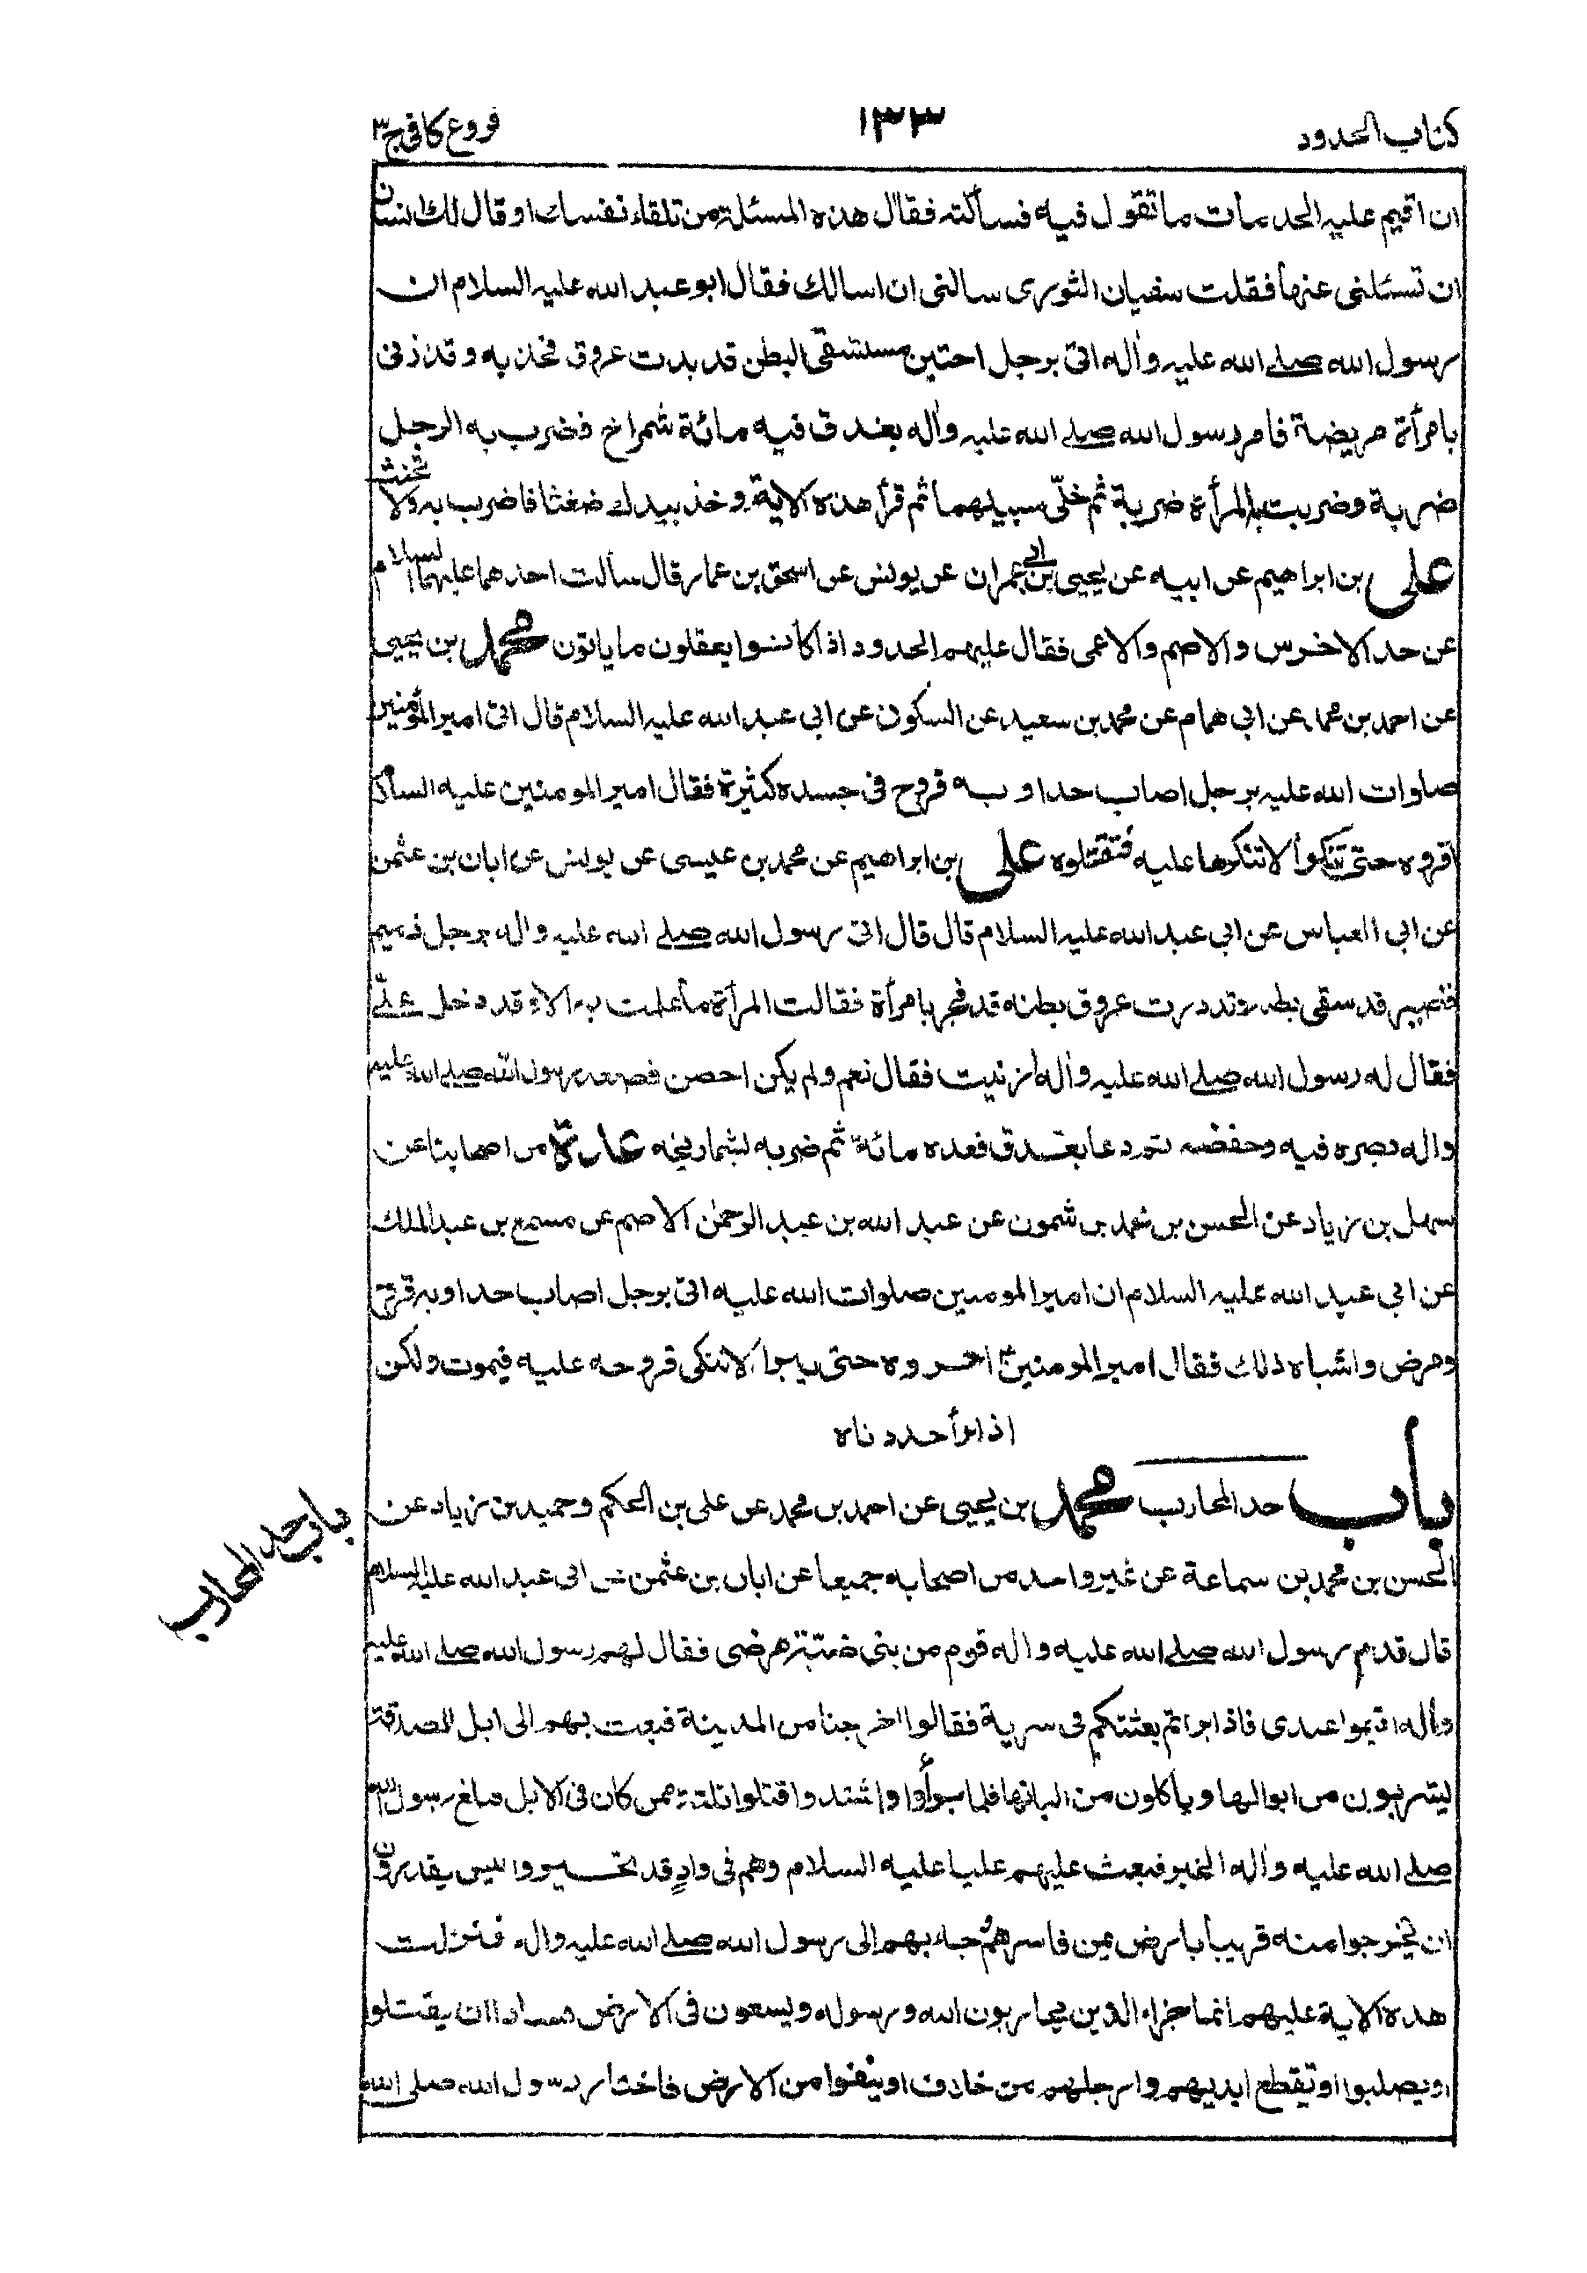 كتاب الحدود ١٣٣ فروع كافى ج٣
ان اقيم عليه الحد مات ما تقول فيه فسألته فقال هذه المسئلة من تلقاء نفسك او قال لك انسان
ان تسئلنى عنها فقلت سفيان الثورى سالنى ان اسالك فقال ابو عبد الله عليه السلام ان
رسول الله صلے الله عليه واله اتى برجل احتبن مستسقى البطن قد بدت عروق فخذيه وقد زنى
بامرأة مريضة فامر رسول الله صلے الله عليه واله بعذق فيه مائة شمراخ فضرب به الرجل
ضربة وضربت به المرأة ضربة ثم خلّى سبيلهما ثم قرأ هذه الاية وخذ بيدك ضغثا فاضرب به ولا تحنث
على بن ابراهيم عن ابيه عن يحيى بن ابى عمران عن يونس عن اسحق بن عمار قال سألت احدهما عليهما السلام
عن حد الاخرس والاصم والاعمى فقال عليهم الحدود اذا كانوا يعقلون ما ياتون محمد بن يحيى
عن احمد بن محمد عن ابى همام عن محمد بن سعيد عن السكونى عن ابى عبد الله عليه السلام قال اتى امير المؤمنين
صلوات الله عليه برجل اصاب حدا و به قروح فى جسده كثيرة فقال امير المومنين عليه السلام
اقروه حتى تبرأ لا تنكوها عليه فتقتلوه على بن ابراهيم عن محمد بن عيسى عن يونس عن ابان بن عثمن
عن ابى العباس عن ابى عبد الله عليه السلام قال قال اتى رسول الله صلے الله عليه واله برجل دميم
قصير قد سقى بطنه وقد درت عروق بطنه قد فجر بامرأة فقالت المرأة ما علمت به الا وقد دخل علىّ
فقال له رسول الله صلے الله عليه واله ازنيت فقال نعم ولم يكن احصن فصعد رسول الله صلے الله عليه
واله بصره فيه وخفضه ثم دعا بعذق فعده مائة ثم ضربه بشماريخه عدة من اصحابنا عن
سهل بن زياد عن الحسن بن محمد بن شمون عن عبد الله بن عبد الرحمن الاصم عن مسمع بن عبد الملك
عن ابى عبد الله عليه السلام ان امير المومنين صلوات الله عليه اتى برجل اصاب حدا وبه قروح
ومرض واشباه ذلك فقال امير المومنين اخروه حتى يبرأ لا تنكى قروحه عليه فيموت ولكن
اذا برأ حددناه
باب حد المحارب محمد بن يحيى عن احمد بن محمد عن على بن الحكم وحميد بن زياد عن
باب حد المحارب
الحسن بن محمد بن سماعة عن غير واحد من اصحابه جميعا عن ابان بن عثمن عن ابى عبد الله عليه السلام
قال قدم رسول الله صلے الله عليه واله قوم من بنى ضبّة مرضى فقال لهم رسول الله صلے الله عليه
واله اقيموا عندى فاذا برأتم بعثتكم فى سرية فقالوا اخرجنا من المدينة فبعث بهم الى ابل الصدقة
يشربون من ابوالها وياكلون من البانها فلما برأوا واشتدوا قتلوا ثلثة ممن كان فى الابل فبلغ رسول الله
صلے الله عليه واله الخبر فبعث عليهم عليا عليه السلام وهم فى وادٍ قد تحيروا ليس يقدرون
ان يخرجوا منه قريبا بارض يمن فاسرهم وجاء بهم الى رسول الله صلے الله عليه واله فنزلت
هذه الاية عليهم انما جزاء الذين يحاربون الله ورسوله ويسعون فى الارض فسادا ان يقتلوا
او يصلبوا او تقطع ايديهم وارجلهم من خلاف او ينفوا من الارض فاختار رسول الله صلى الله